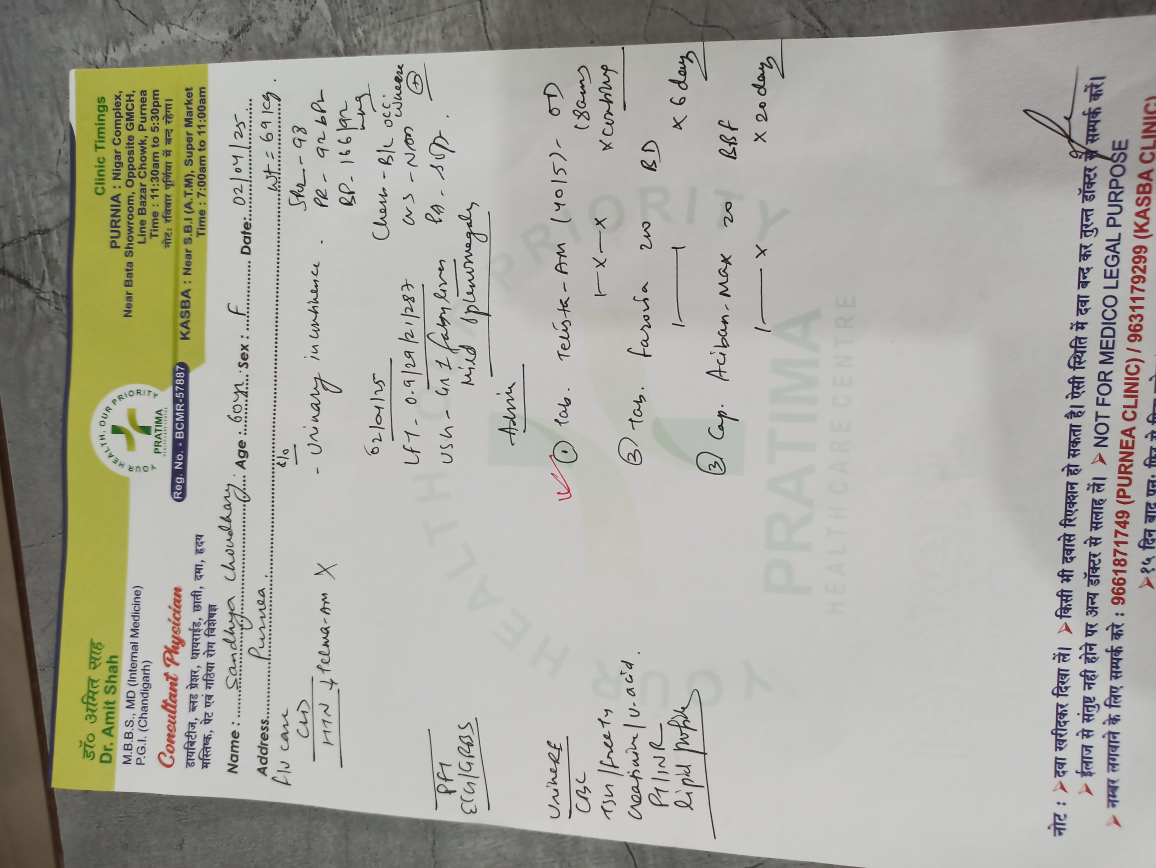 डॉ० अमित साह
Dr. Amit Shah
M.B.B.S., MD (Internal Medicine)
P.G.I. (Chandigarh)
Consultant Physician
डायबिटीज, ब्लड प्रेशर, थायराईड, छाती, दमा, हृदय
मस्तिष्क, पेट एवं गठिया रोग विशेषज्ञ
YOUR HEALTH, OUR PRIORITY
PRATIMA
Reg. No. - BCMR-57887
Clinic Timings
PURNIA : Nigar Complex,
Near Bata Showroom, Opposite GMCH,
Line Bazar Chowk, Purnea
Time : 11:30am to 5:30pm
नोट: रविवार पूर्णिया में बन्द रहेगा।
KASBA : Near S.B.I (A.T.M), Super Market
Time : 7:00am to 11:00am
Name : Sandhya Choudhary Age : 60yr Sex : F Date: 02/04/25
Address Purnea wt = 69 kg.
F/U case
CLD
HTN Telma-AM X
c/o
- Urinary incontinence.
PR - 92 bpm
BP - 166/92
Chest - B/L occ. wheeze +
CVS - N
P/A - soft.
LFT - 0.9/29/21/287
USG - Gr I fatty liver
Mild Splenomegaly
PFT
ECG/GRBS
Advise
① Tab. Telista-AM (40/5) - OD
1-x-x (8am) x continue
② Tab. Farovia 200 BD
1——1 x 6 days
③ Cap. Aciban-Max 20 BBF
1——x x 20 days
Urine RE
CBC
TSH/free T4
Creatinine/U-acid.
PT/INR
lipid profile
YOUR HEALTH OUR PRIORITY
PRATIMA
HEALTHCARE CENTRE
नोट : ➤ दवा खरीदकर दिखा लें। ➤ किसी भी दवासे रिएक्शन हो सकता है। ऐसी स्थिति में दवा बन्द कर तुरन्त डॉक्टर से सम्पर्क करें।
➤ ईलाज से संतुष्ट नही होने पर अन्य डॉक्टर से सलाह लें। ➤ NOT FOR MEDICO LEGAL PURPOSE
➤ नम्बर लगवाने के लिए सम्पर्क करे : 9661871749 (PURNEA CLINIC) / 9631179299 (KASBA CLINIC)
➤ १५ दिन बाद पुनः